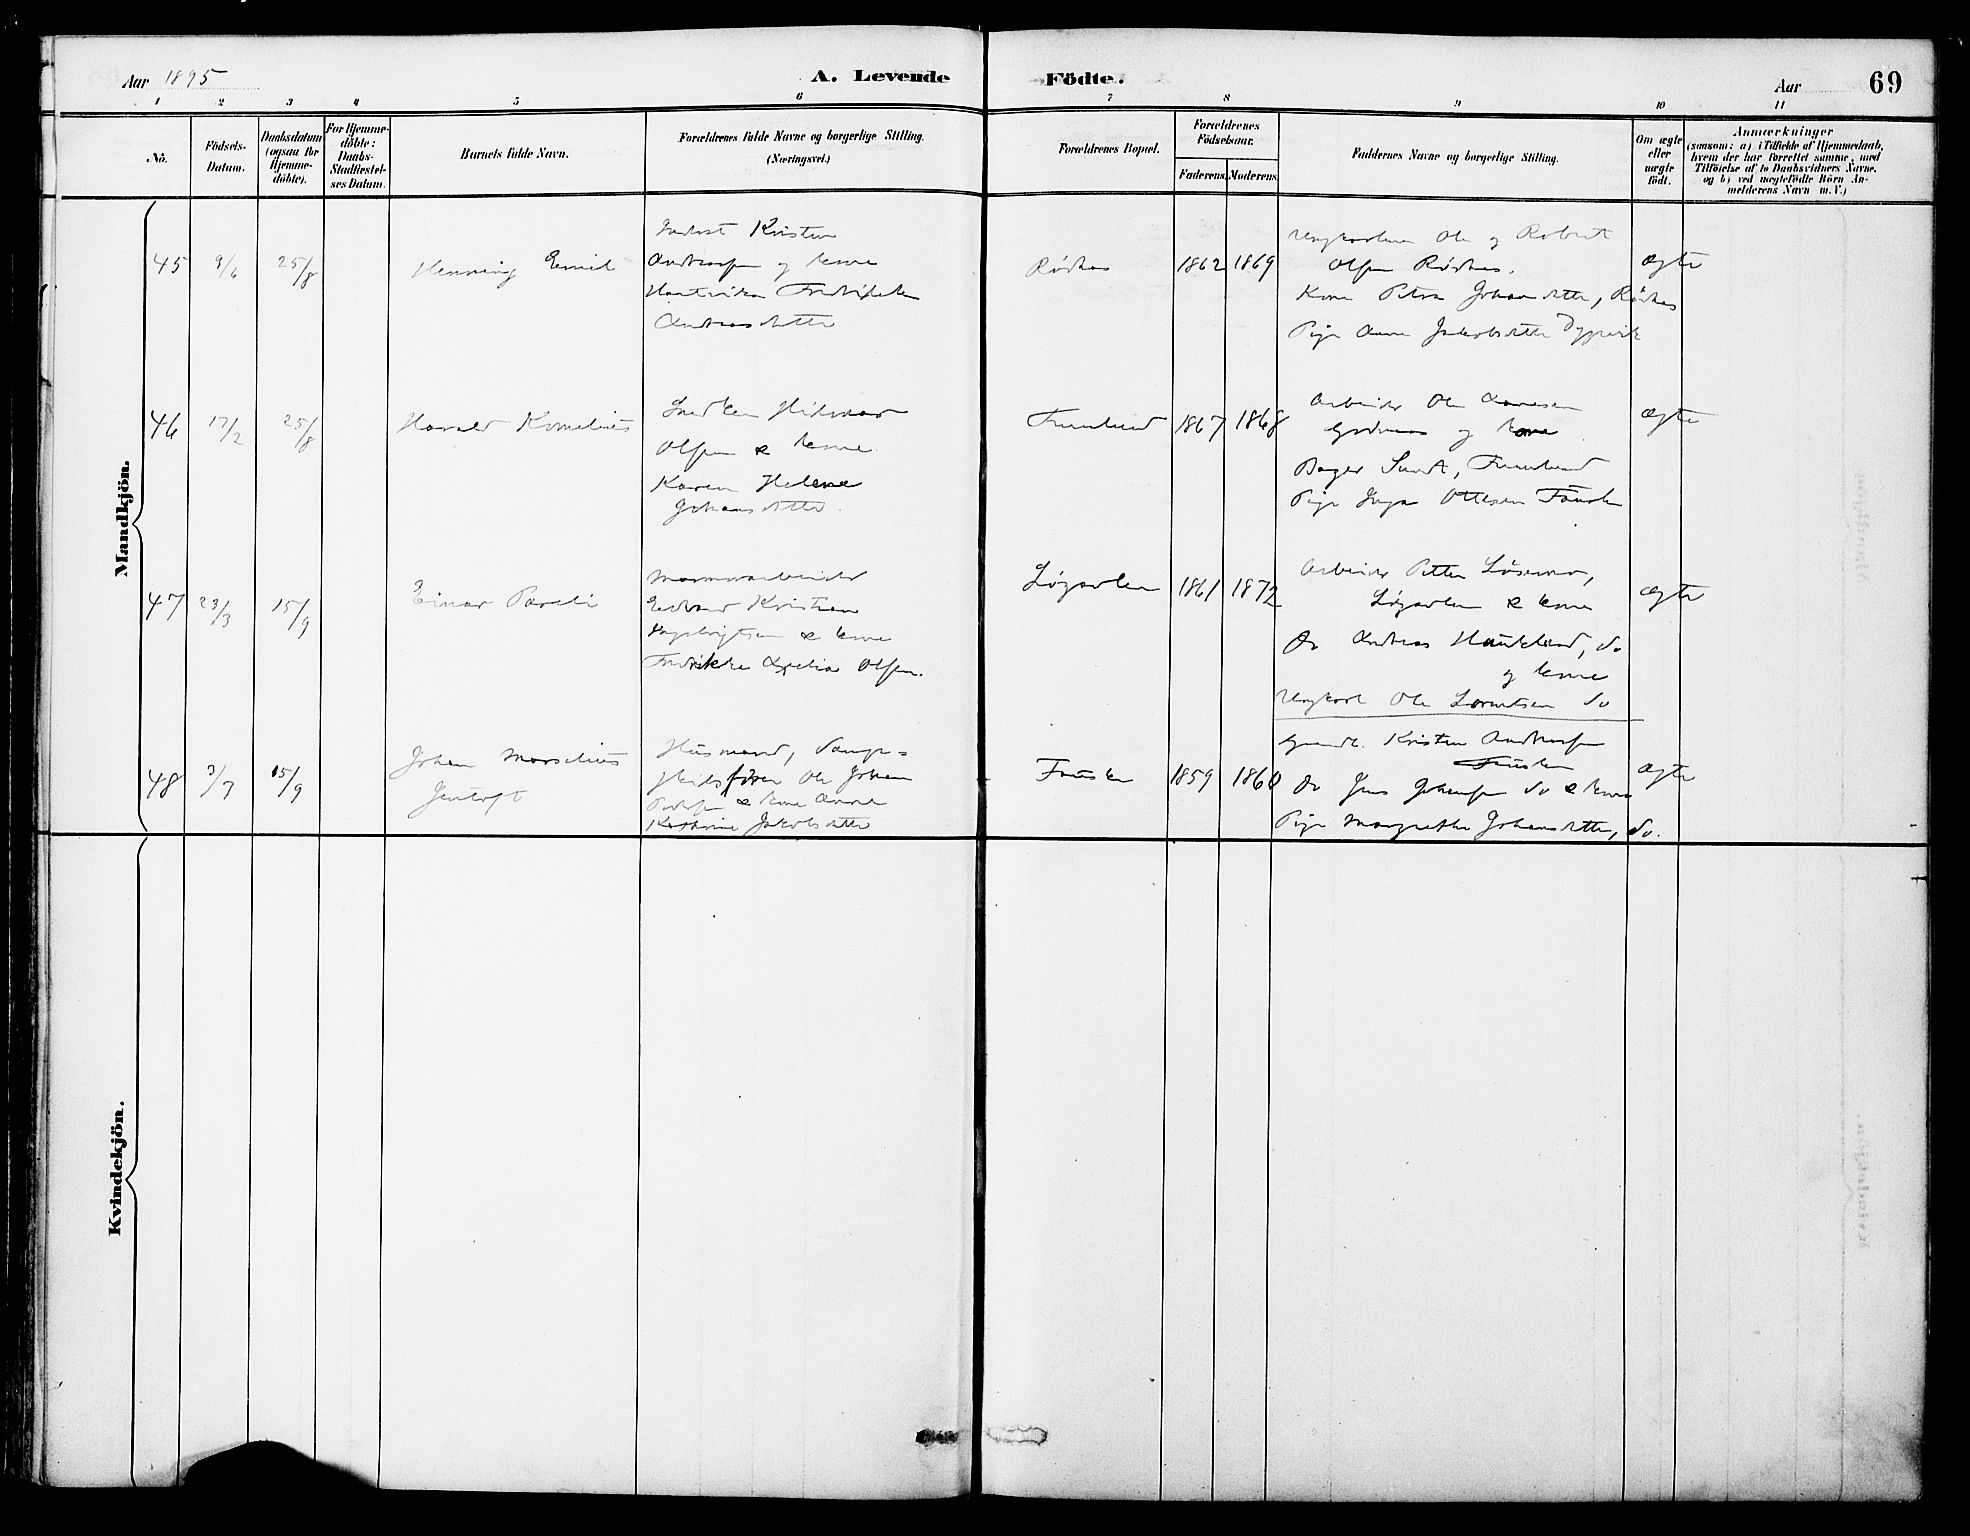 Aar 1895
A. Levende Födte.
Aar
69
1 2 3 4 5 6 7 8 9 10 11
No.
Födsels-
Datum.
Daabsdatum
(ogsaa for
Hjemme-
döbte).
For Hjemme-
döbte:
Daabs-
Stadfæstel-
ses Datum.
Barnets fulde Navn.
Forældrenes fulde Navne og borgerlige Stilling.
(Næringsvei.)
Forældrenes Bopæl.
Forældrenes
Födselsaar.
Faderens. Moderens.
Faddernes Navne og borgerlige Stilling.
Om ægte
eller
uægte
födt.
Anmærkninger
(saasom: a) i Tilfælde af Hjemmedaab,
hvem der har forrettet samme, med
Tilföielse af to Daabsvidners Navne,
og b) ved uægtefödte Börn An-
melderens Navn m. V.)
Mandkjön.
45
9/6
25/8
Henning Emil
Kristen
Andreassen og kone
Hartvika Fredrikke
Andreasdatter
Røsnes
1862 1869
Ungkarlene Ole og Robert
Olsen Røsnes.
Kone Petra Johansdatter, Røsnes
Pige Anna Jakobsdatter Dypvik
ægte
46
17/2
25/8
Harald Kornelius
Snedker Hilmar
Olsen & kone
Karen Helene
Johansdatter.
Furulund
1867 1868
Arbeider Ole
og kone
Bager Sundt, Furulund
Pige Inga Ottesen Fauske
ægte
47
23/3
15/9
Einar Pareli
Marmorarbeider
Edvard Kristian
Ingebrigtsen & kone
Fredrikke Olsen.
Løgavlen
1861 1872
Arbeider Petter
Løgavlen & kone
Do Andreas Haukland, do
og kone
Ungkarl Ole Lorentsen do
ægte
48
3/7
15/9
Johan Marselius
Jentoft
Husmand, Damp-
skibsfører Ole Johan
Pedersen & kone Anna
Katharina Jakobsdatter
Fauske
1859 1860
Gaardb. Kristen Andreassen
Fauske
Do Jens Johansen do & kone
Pige Margrethe Johansdatter, do.
ægte
Kvindekjön.